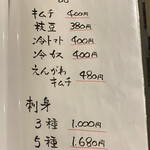 キムチ 400円
枝豆 380円
冷トマト 400円
冷ナス 400円
えんがわ
キムチ 480円
刺身
3種 1.000円
5種 1.680円